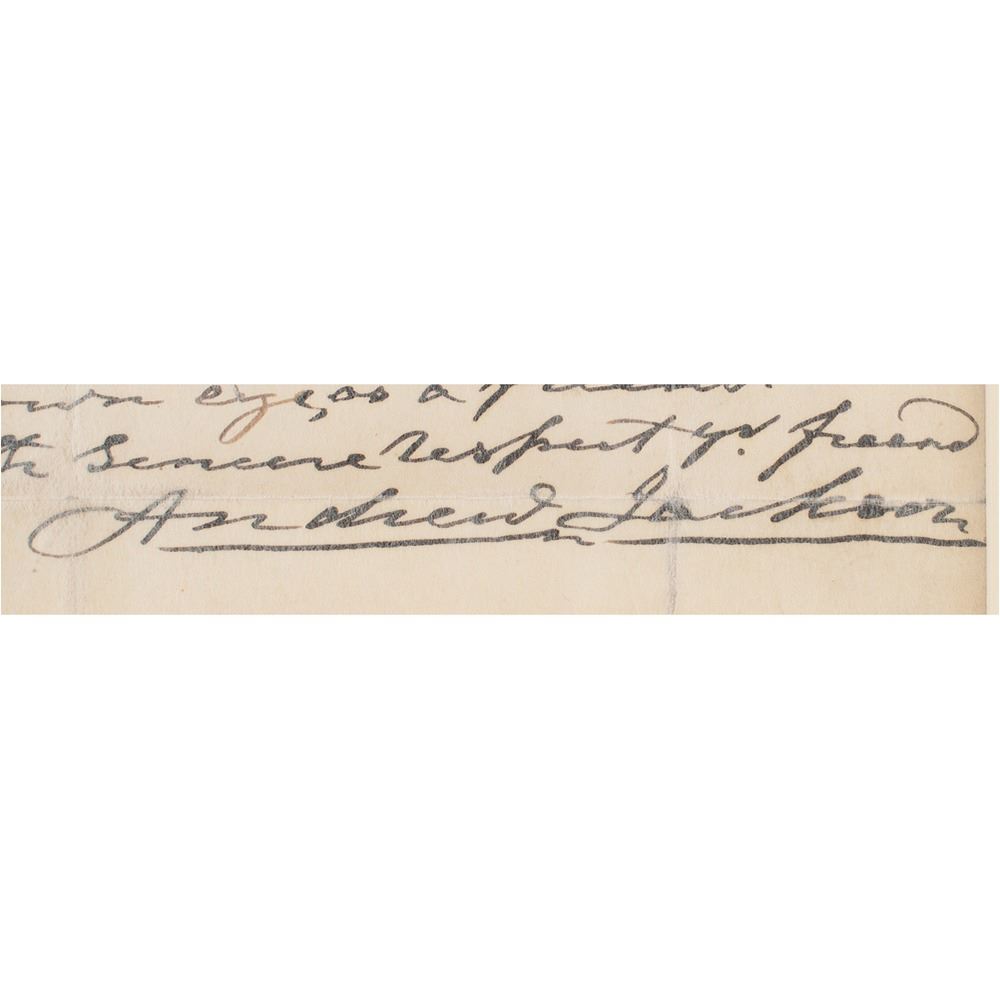 own eye, as a friend.
th sincere respect yr. friend
Andrew Jackson